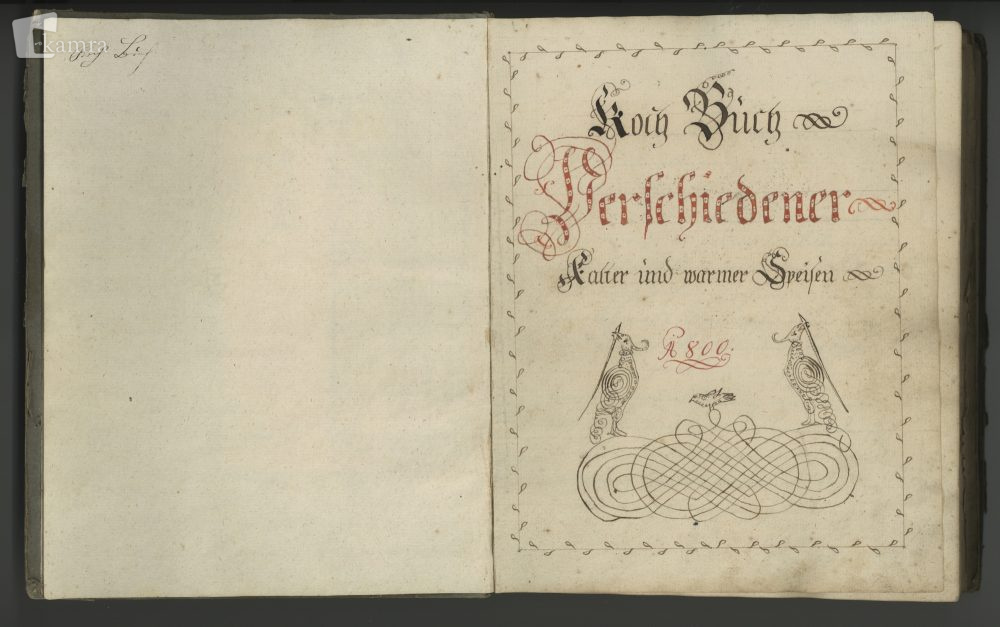 kamra
Koch Büch
Verschiedener
Kalter und warmer Speisen
A 800.